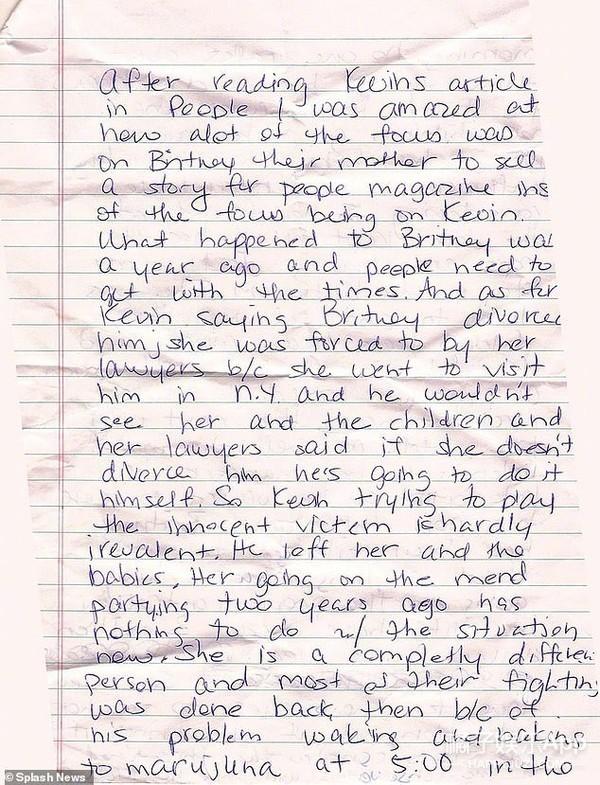 After reading Kevins article
in People I was amazed at
how alot of the focus was
on Britney their mother to sell
a story for people magazine ins
of the focus being on Kevin.
What happened to Britney was
a year ago and people need to
get with the times. And as for
Kevin saying Britney divorce
him, she was forced to by her
lawyers b/c she went to visit
him in N.Y. and he wouldn't
see her and the children and
her lawyers said if she doesn't
divorce him he's going to do it
himself. So Kevin trying to play
the innocent victem is hardly
irevalent. He left her and the
babies. Her going on the mend
partying two years ago has
nothing to do w/ the situation
now. She is a completly differen
person and most of their fighting
was done back then b/c of
his problem waking and baking
to marujuna at 5:00 in the
© Splash News